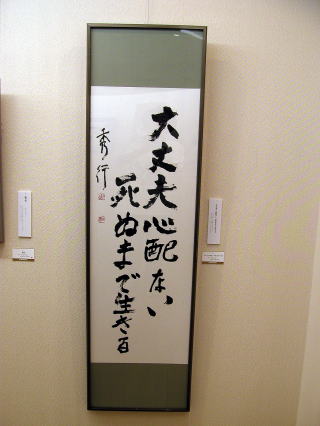 大丈夫心配ない
死ぬまで生きる
秀行